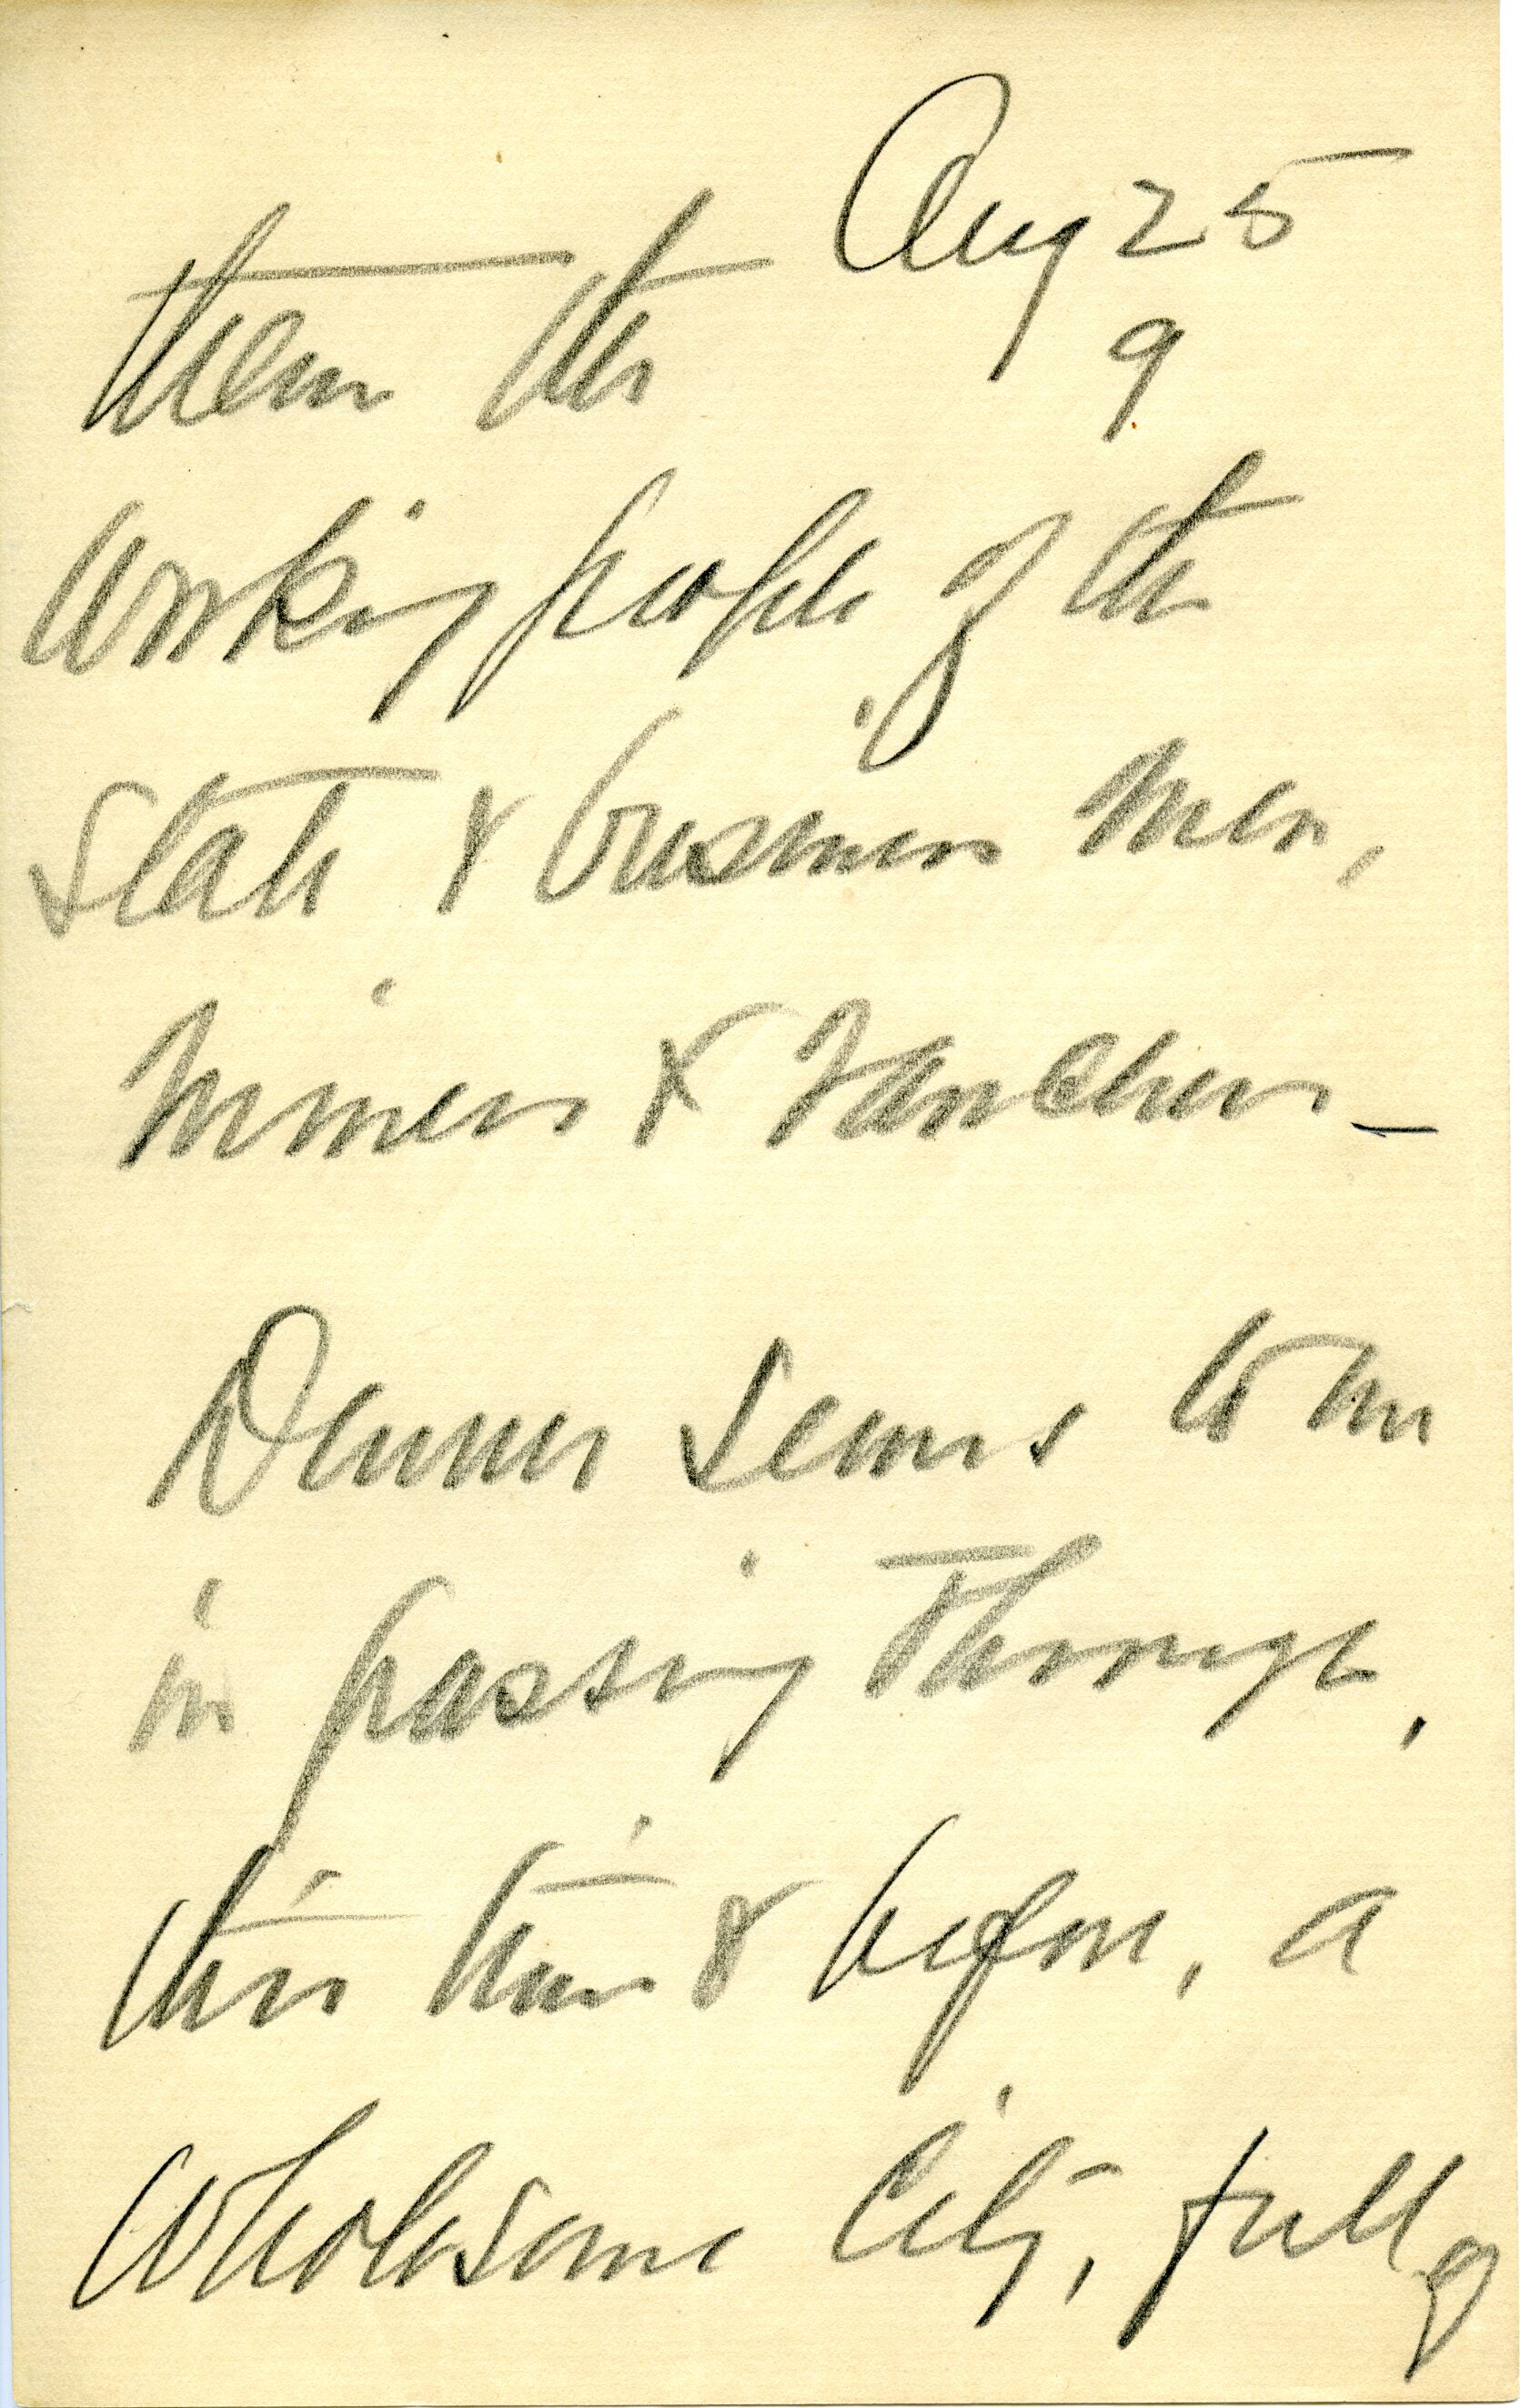 Aug 25
9
them the
working people of the
State & business men,
miners & ranchers —
Denver seems to me
in passing through,
this time & before, a
wholesome City, full of